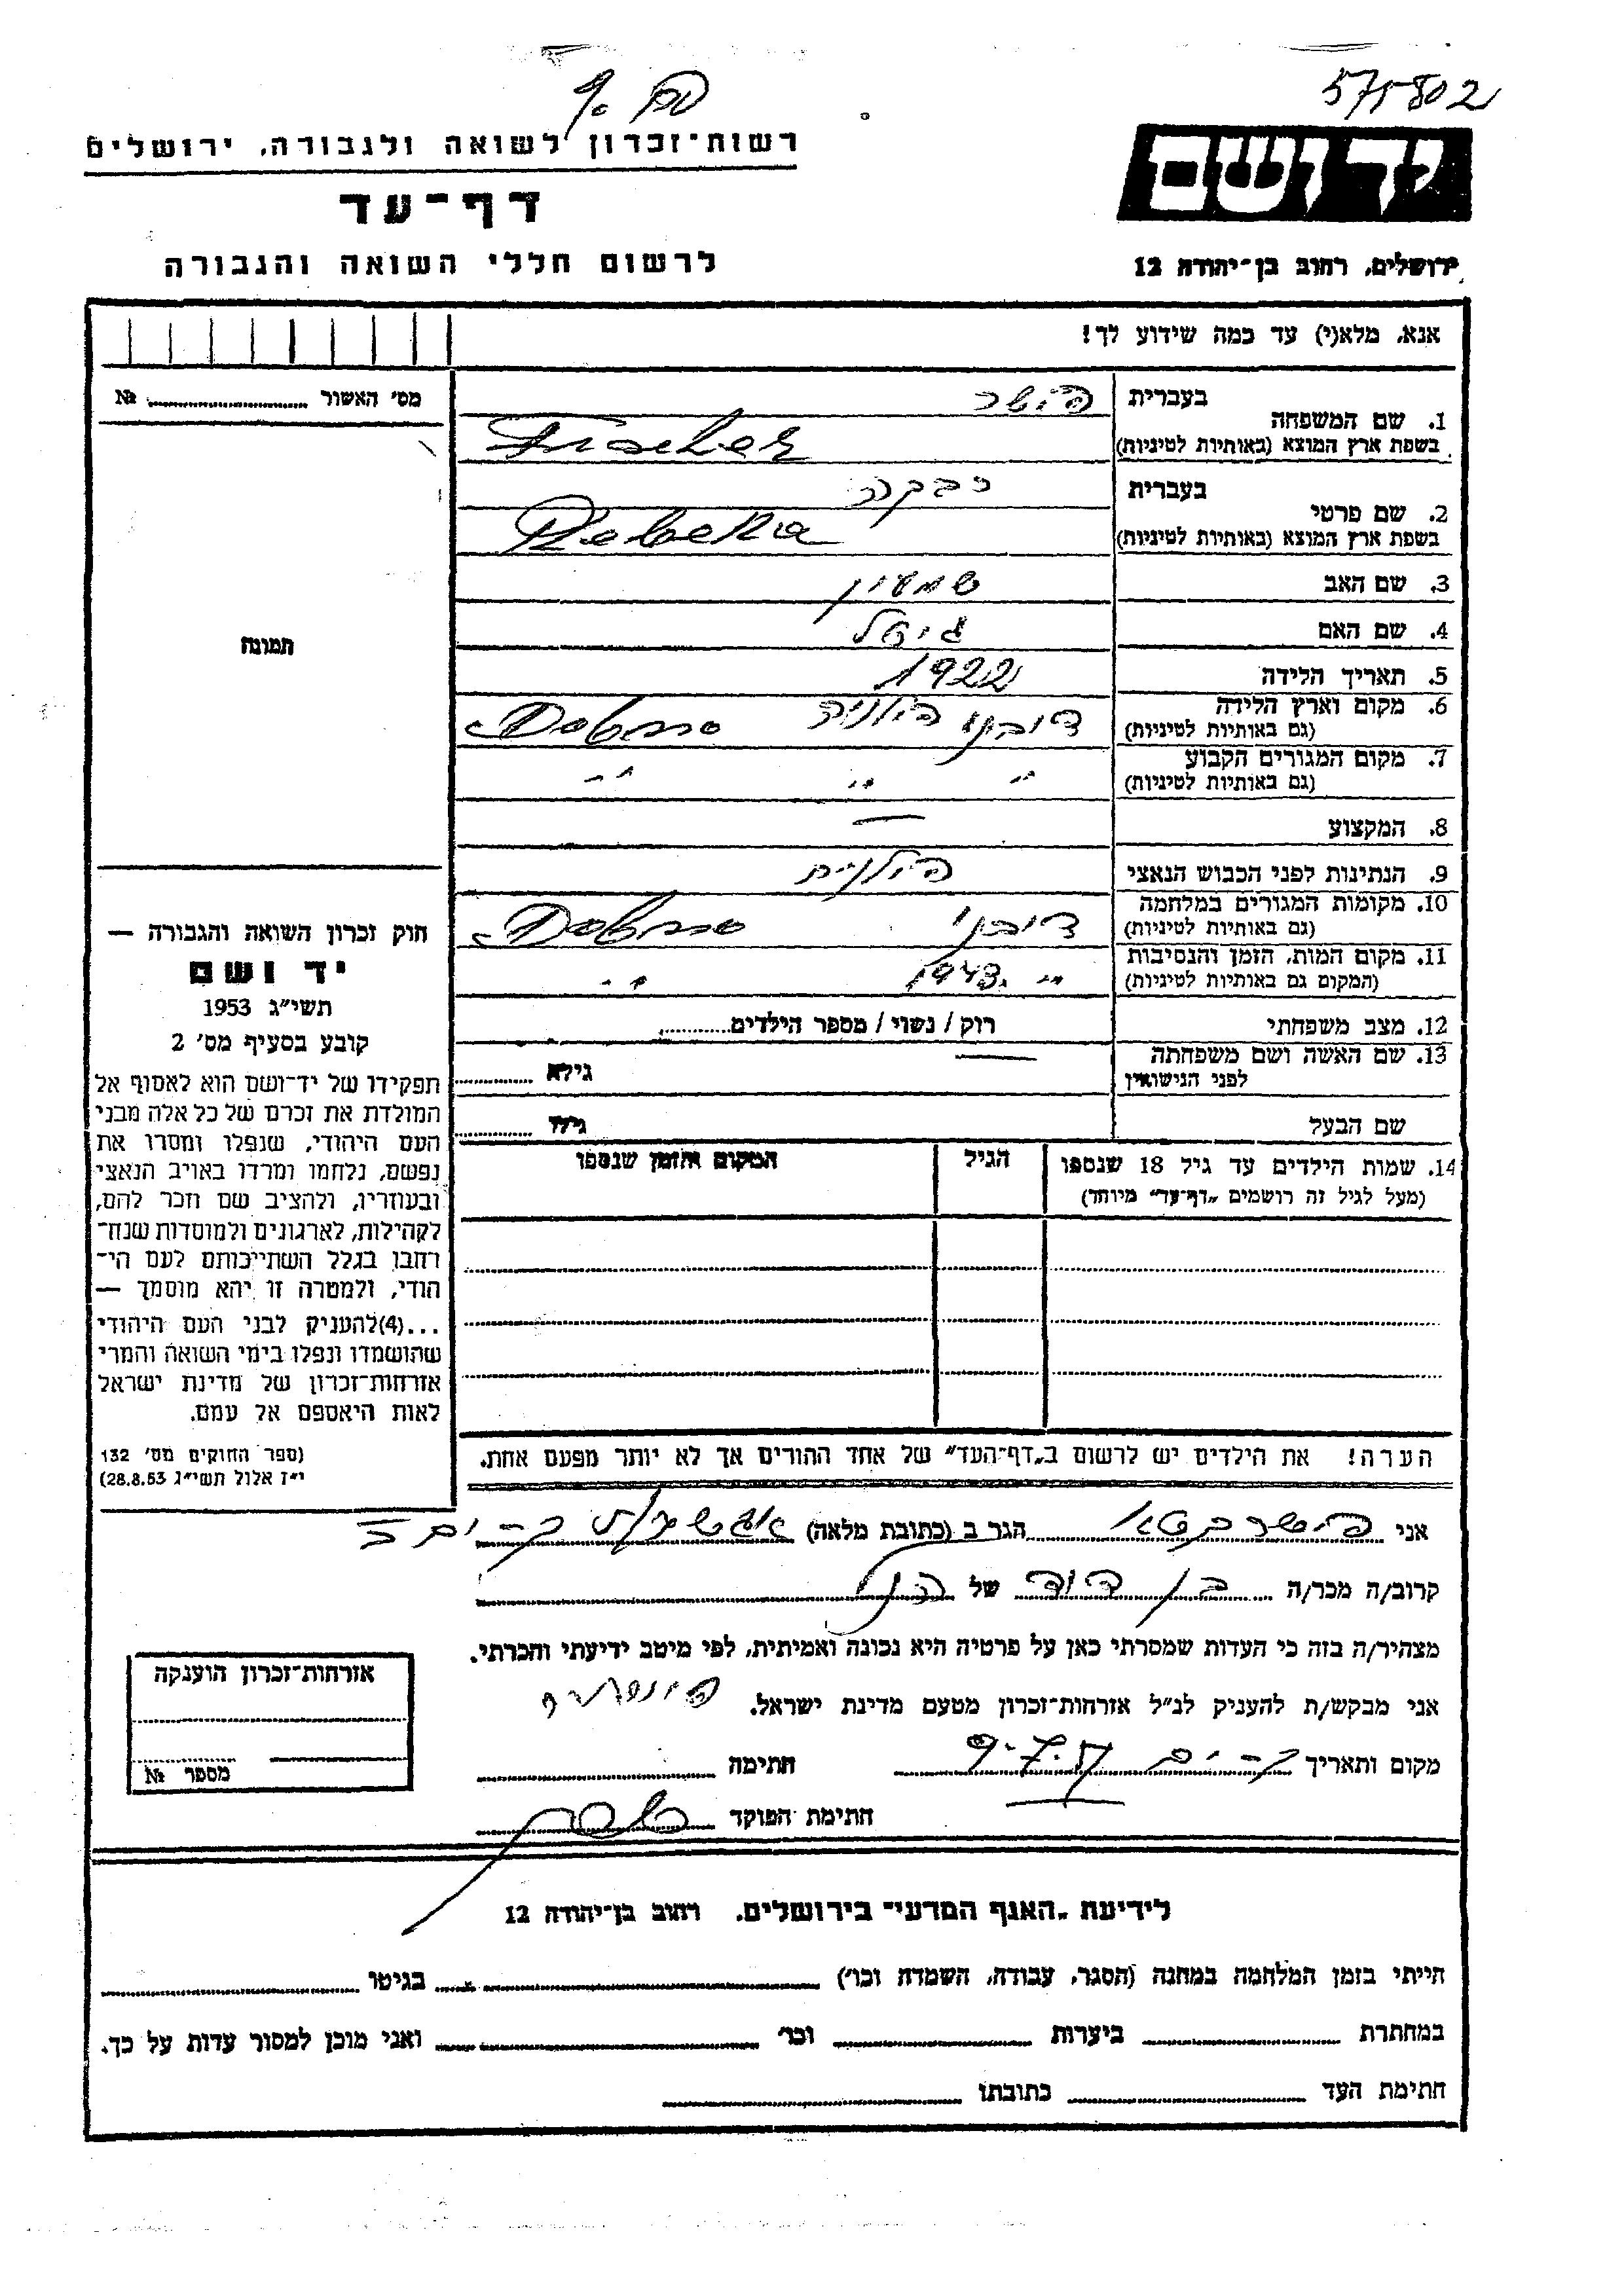 571802
רשות־זכרון לשואה ולגבורה, ירושלים
יד ושם
דף־עד
לרשום חללי השואה והגבורה
ירושלים, רחוב בן־יהודה 12
אנא, מלא(י) עד כמה שידוע לך!
מס' האשור № ..........
תמונה
1. שם המשפחה בעברית פישר
בשפת ארץ המוצא (באותיות לטיניות) Fischer
2. שם פרטי בעברית רבקה
בשפת ארץ המוצא (באותיות לטיניות) Rebeka
3. שם האב שמעון
4. שם האם גיטל
5. תאריך הלידה 1922
6. מקום וארץ הלידה (גם באותיות לטיניות) דובנו פולניה
7. מקום המגורים הקבוע (גם באותיות לטיניות) " " "
8. המקצוע —
9. הנתינות לפני הכבוש הנאצי פולנית
10. מקומות המגורים במלחמה (גם באותיות לטיניות) דובנו
11. מקום המות, הזמן והנסיבות (המקום גם באותיות לטיניות) " 1943 "
12. מצב משפחתי רוק / נשוי / מספר הילדים..........
13. שם האשה ושם משפחתה לפני הנישואין — גילא ..........
שם הבעל גילו ..........
14. שמות הילדים עד גיל 18 שנספו
(מעל לגיל זה רושמים "דף־עד" מיוחד)
הגיל
המקום והזמן שנספו
חוק זכרון השואה והגבורה —
יד ושם
תשי"ג 1953
קובע בסעיף מס' 2
תפקידו של יד־ושם הוא לאסוף אל
המולדת את זכרם של כל אלה מבני
העם היהודי, שנפלו ומסרו את
נפשם, נלחמו ומרדו באויב הנאצי
ובעוזריו, ולהציב שם וזכר להם,
לקהילות, לארגונים ולמוסדות שנח־
רחבו בגלל השתייכותם לעם הי־
הודי, ולמטרה זו יהא מוסמך —
...(4)להעניק לבני העם היהודי
שהושמדו ונפלו בימי השואה והמרי
אזרחות־זכרון של מדינת ישראל
לאות היאספם אל עמם.
(ספר החוקים מס' 132
י"ז אלול תשי"ג 28.8.53)
הערה! את הילדים יש לרשום ב"דף־העד" של אחד ההורים אך לא יותר מפעם אחת.
אני הגר ב (כתובת מלאה)
קרוב/ה מכר/ה בן דוד של הנ"ל
מצהיר/ה בזה כי העדות שמסרתי כאן על פרטיה היא נכונה ואמיתית, לפי מיטב ידיעתי והכרתי.
אני מבקש/ת להעניק לנ"ל אזרחות־זכרון מטעם מדינת ישראל.
מקום ותאריך ק-ים חתימה
חתימת הפוקד
אזרחות־זכרון הוענקה
מספר №
לידיעת "האגף המדעי" בירושלים, רחוב בן־יהודה 12
הייתי בזמן המלחמה במחנה (הסגר, עבודה, השמדה וכו') .......... בגיטו ..........
במחתרת .......... ביערות .......... וכו' .......... ואני מוכן למסור עדות על כך.
חתימת העד .......... כתובתו ..........